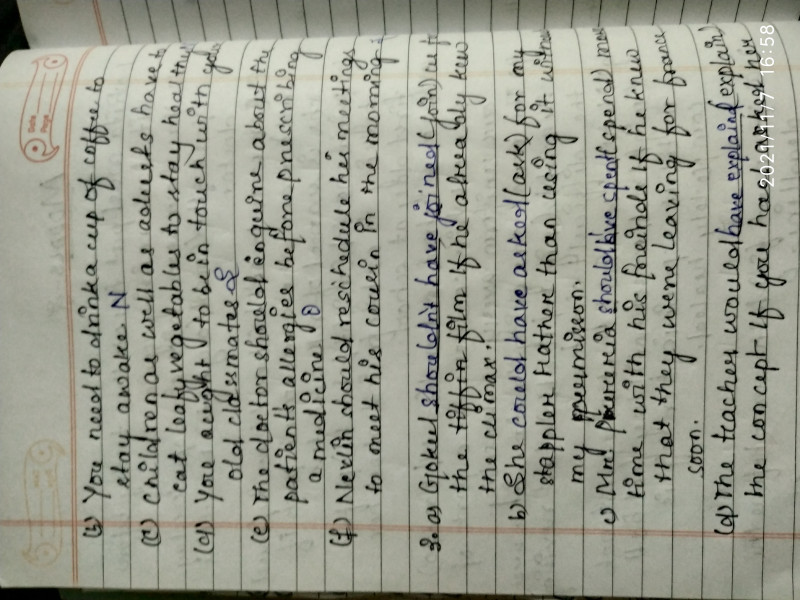 (b) You need to drink a cup of coffee to
stay awake. N
(c) Children as well as adults have to
eat leafy vegetables to stay healthy
(d) You aught to be in touch with your
old classmates S
(e) The doctor should enquire about the
patients allergies before prescribing
a medicine O
(f) Nevlin should reschedule his meetings
to meet his cousin in the morning
2. a) Gokul shouldn't have joined (join) us f
the film if he already knew
the climax.
b) She could have asked (ask) for my
stappler rather than using it witho
my permission.
c) Mr. should have spent (spend) more
time with his freinds if he knew
that they were leaving for france
soon.
(d) The teacher would have explained (explain)
the concept if you had asked her
2021/11/9 16:58
Date
Page